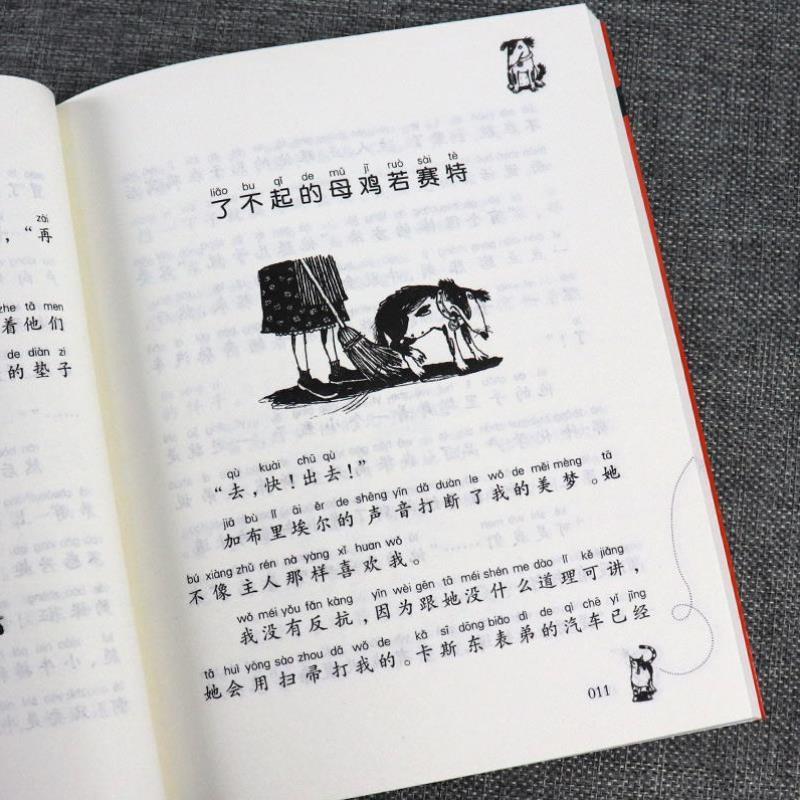 zài
，“再
zhe tā men
着他们
de diàn zi
的垫子
liǎo bu qǐ de mǔ jī ruò sài tè
了不起的母鸡若赛特
qù kuài chū qù
“去，快！出去！”
jiā bù lǐ āi ěr de shēng yīn dǎ duàn le wǒ de měi mèng tā
加布里埃尔的声音打断了我的美梦。她
bú xiàng zhǔ rén nà yàng xǐ huan wǒ
不像主人那样喜欢我。
wǒ méi yǒu fǎn kàng yīn wèi gēn tā méi shén me dào lǐ kě jiǎng
我没有反抗，因为跟她没什么道理可讲，
tā huì yòng sào zhou dǎ wǒ de kǎ sī dōng biǎo dì de qì chē yǐ jīng
她会用扫帚打我的。卡斯东表弟的汽车已经
011